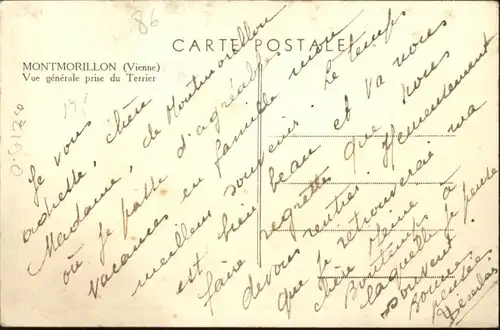 86
CARTE POSTALE
MONTMORILLON (Vienne)
Vue générale prise du Terrier
Je vous
adresse, chère
Madame, de Montmorillon
où je passe d'agréables
vacances en famille mon
meilleur souvenir. Le temps
est bien beau et va nous
faire regretter que nous
devons rentrer. Heureusement
que je retrouverai ma
chère Reine
Bontemps à
laquelle je pense
souvent.
Bonnes
pensées